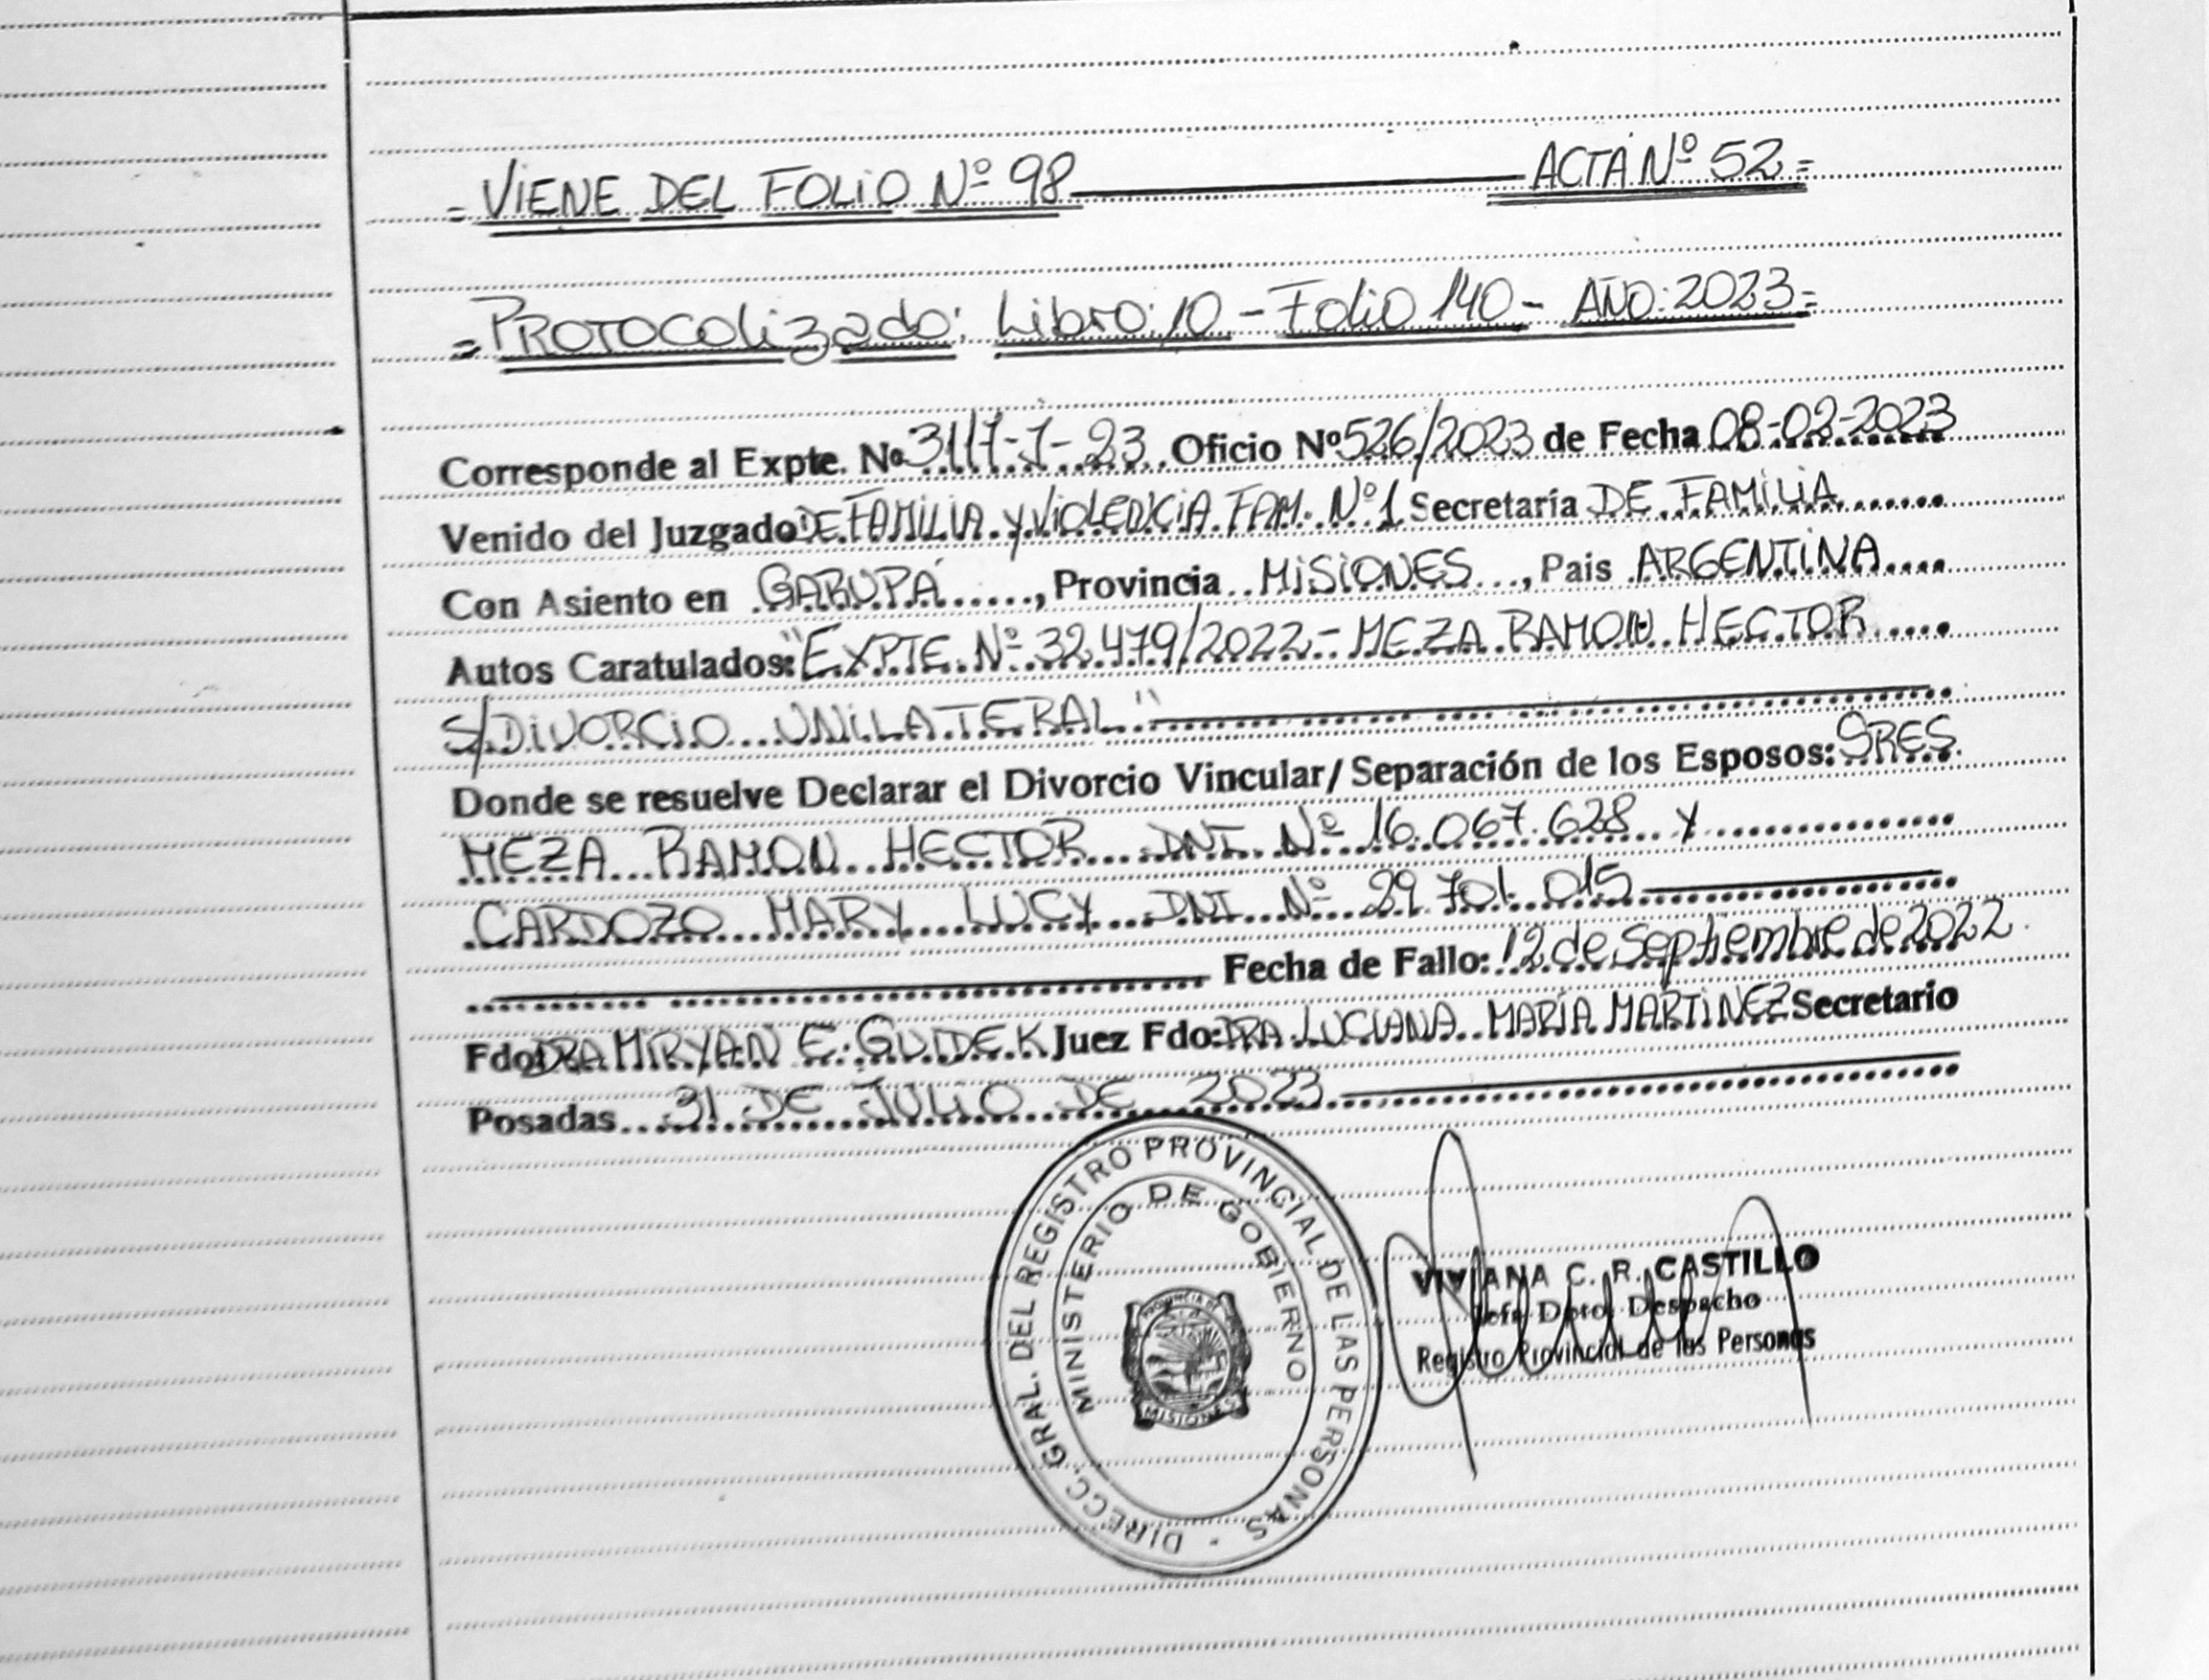 = VIENE DEL FOLIO Nº 98 ACTA Nº 52 =
= PROTOCOLIZADO: Libro: 10 - Folio 140 - AÑO: 2023 =
Corresponde al Expte. Nº 3117-J-23. Oficio Nº 526/2023 de Fecha 08-02-2023
Venido del Juzgado DE FAMILIA Y VIOLENCIA FAM. Nº 1 Secretaría DE FAMILIA
Con Asiento en GARUPÁ, Provincia MISIONES, Pais ARGENTINA
Autos Caratulados: "EXPTE. Nº 32.479/2022 - MEZA RAMON HECTOR
S/DIVORCIO UNILATERAL"
Donde se resuelve Declarar el Divorcio Vincular/Separación de los Esposos: SRES.
MEZA RAMON HECTOR DNI Nº 16.067.628 Y
CARDOZO MARY LUCY DNI Nº 29.701.015
Fecha de Fallo: 12 de Septiembre de 2022.
Fdo: DRA MIRYAN E. GUDEK Juez Fdo: DRA LUCIANA MARÍA MARTINEZ Secretario
Posadas 31 DE JULIO DE 2023.
DIRECC. GRAL. DEL REGISTRO PROVINCIAL DE LAS PERSONAS -
MINISTERIO DE GOBIERNO
PROVINCIA DE
MISIONES
VIVIANA C. R. CASTILLO
Jefa Dpto. Despacho
Registro Provincial de las Personas